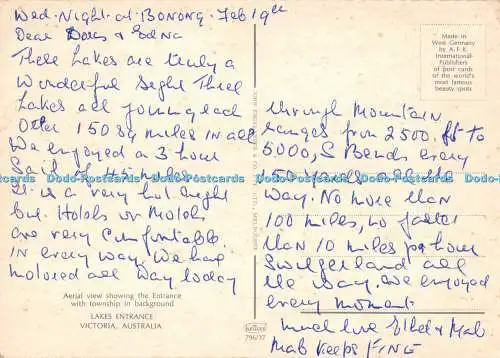 Wed. Night. at. BONONG. Feb 19th
Dear Doris & Edna
These Lakes are truly a
Wonderful Sight Three
Lakes all joining each
Other 150 sq miles in all
We enjoyed a 3 hour
Sail of miles
It is a very hot night
but. Hotels or Motels
are very Comfortable
in every way. We had
motored all way today
Aerial view showing the Entrance
with township in background
LAKES ENTRANCE
VICTORIA, AUSTRALIA
Made in
West Germany
by A.F.K.
International-
Publishers
of post cards
of the world's
most famous
beauty spots
through Mountain
ranges from 2500. ft to
5000, S Bends every
yards all the
way. No more than
100 miles, no faster
than 10 miles per hour
Switzerland all
the way. We enjoyed
every moment
much love Ethel & Mab.
Mab Keeps FINE
796/37
Dodo Postcards